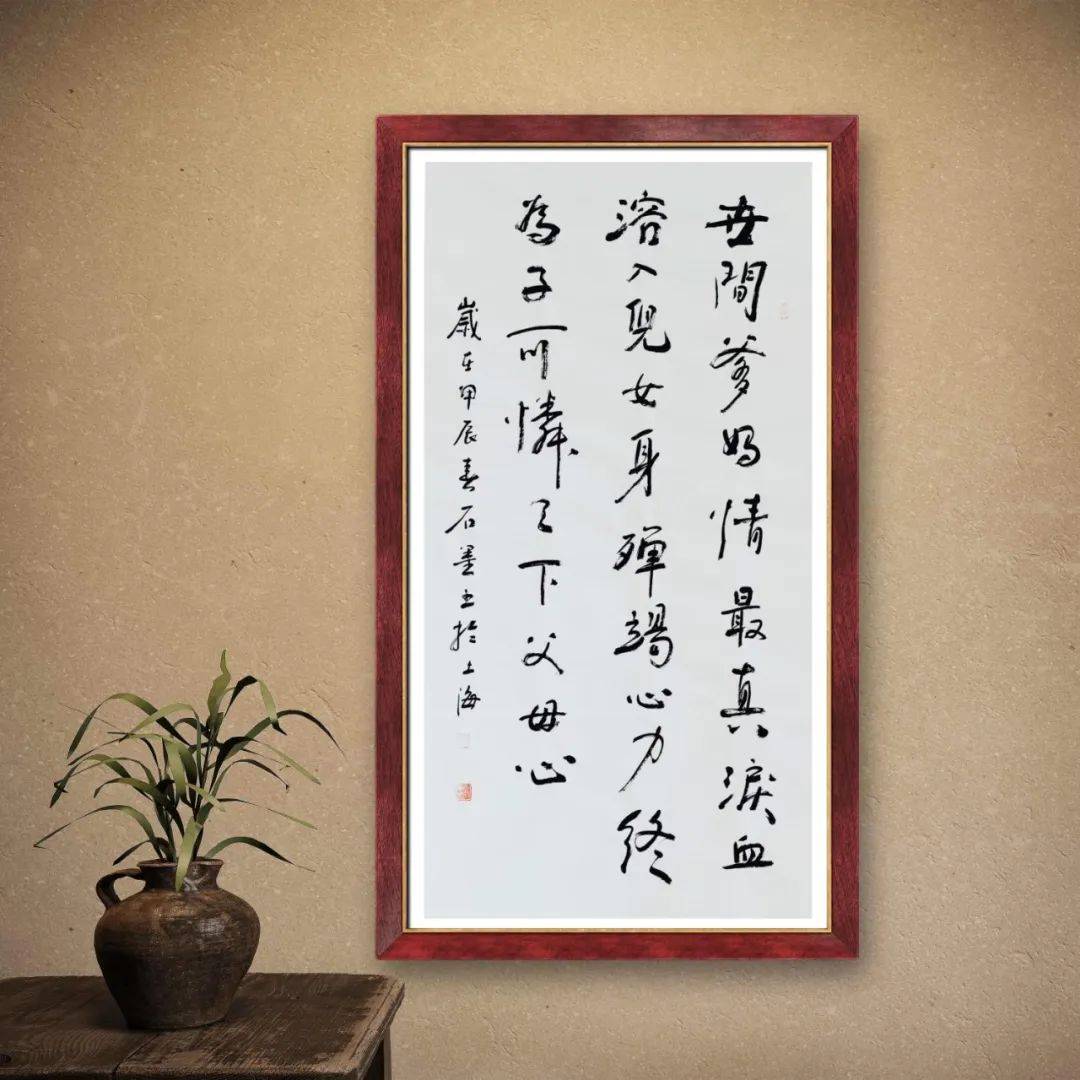 世間爹媽情最真淚血
溶入兒女身殫竭心力終
為子可憐天下父母心
歲在甲辰春石墨書於上海